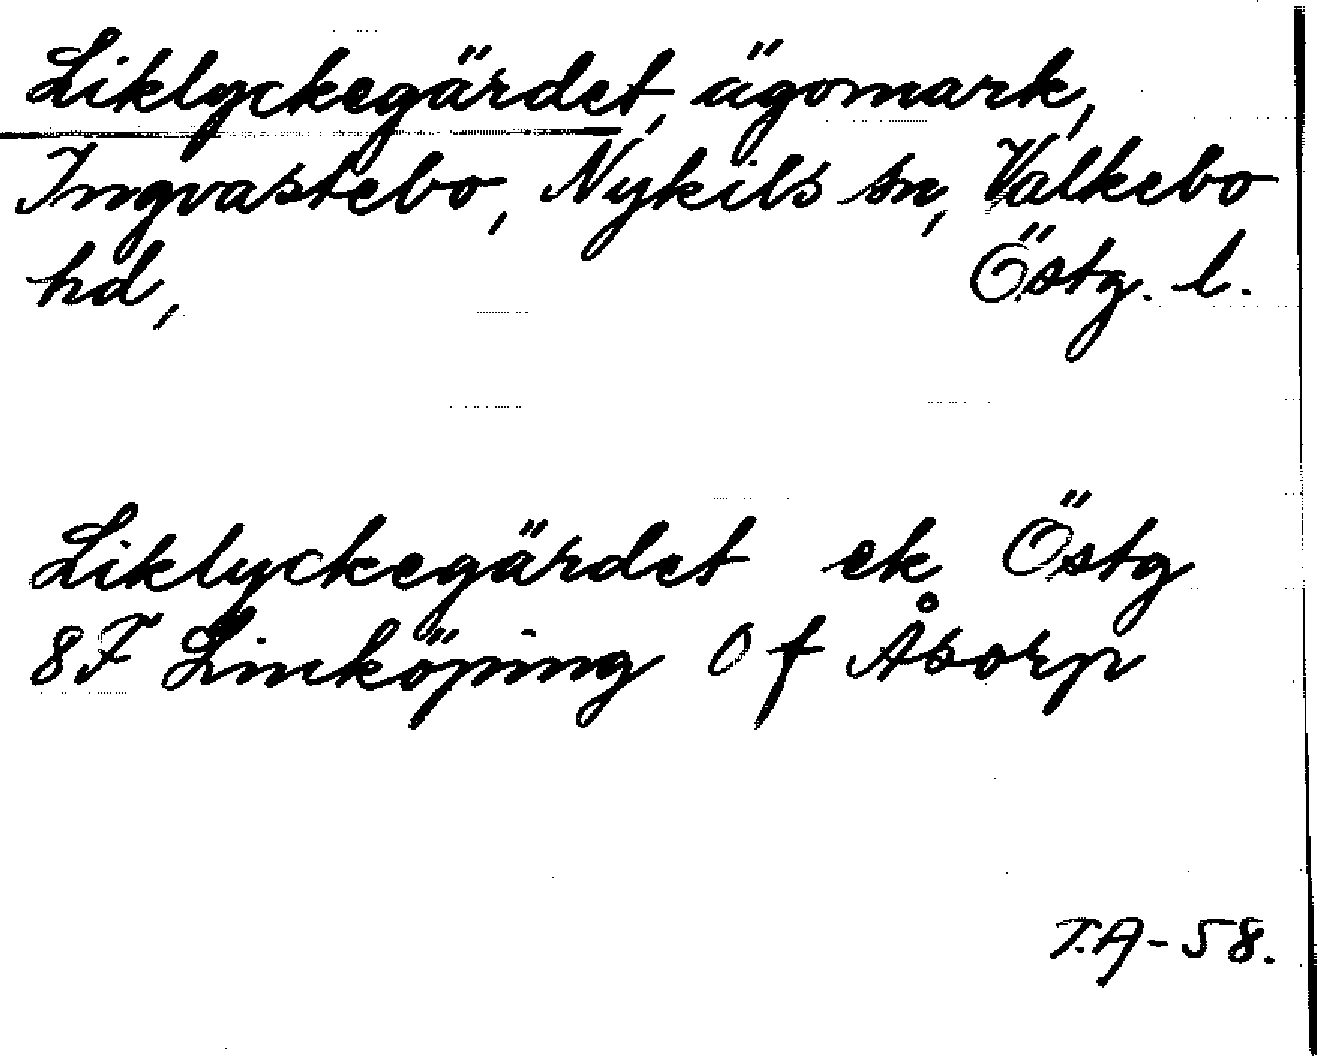 Liklyckegärdet, ägomark,
Ingvastebo, Nykils sn, Valkebo
hd, Östg. l.
Liklyckegärdet ek Östg
8F Linköping 0 f Åsorp
T.A-58.